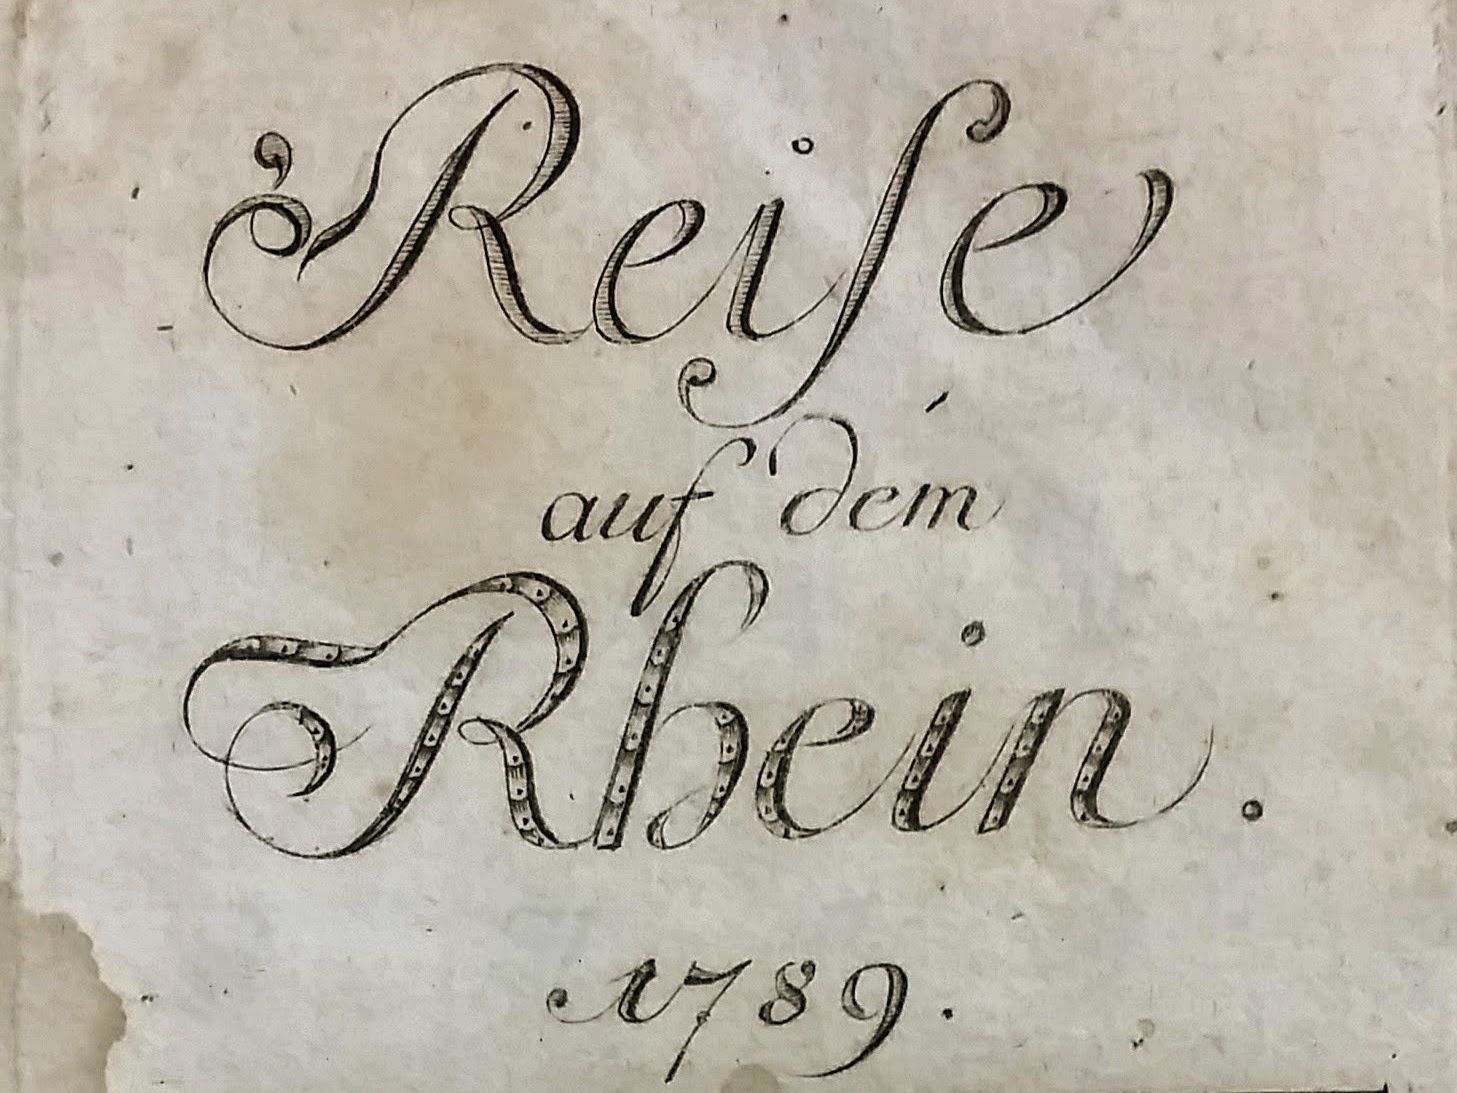 Reiſe
auf dem
Rhein.
1789.